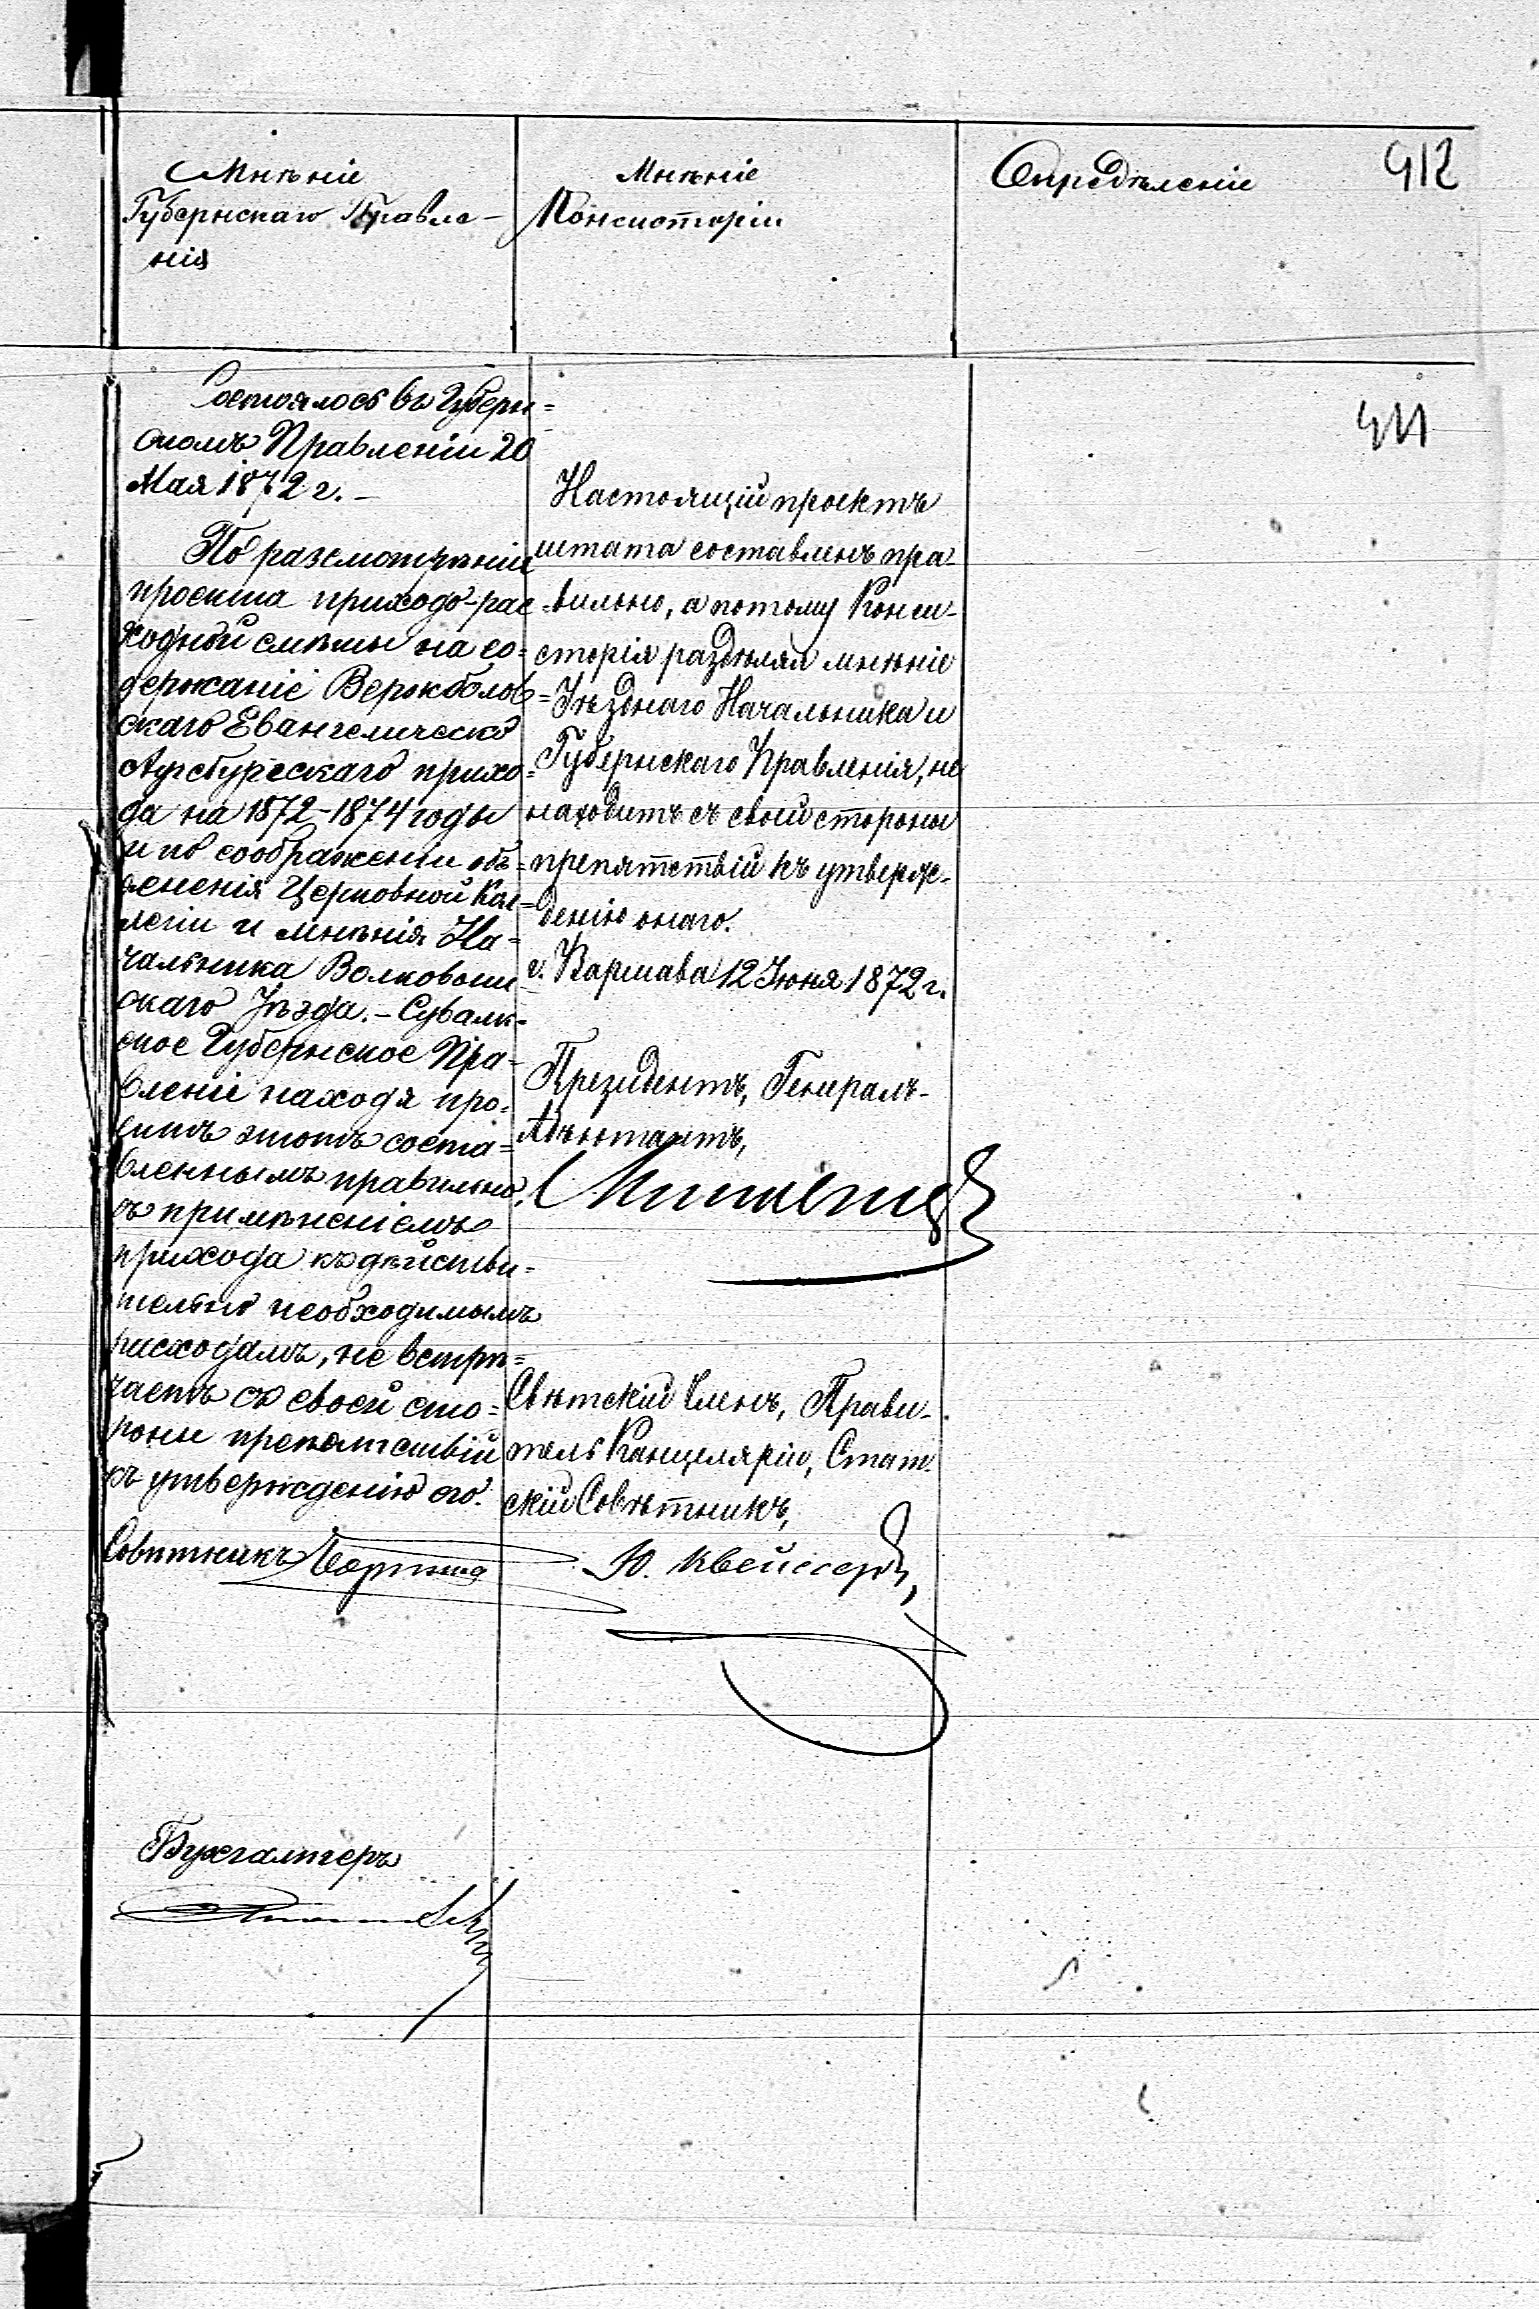 Мнѣніе
Губернскаго Правле-
нія
Мнѣніе
Консисторіи
Опредѣленіе
412
411
Состоялось въ Губерн=
скомъ Правленіи 20
Мая 1872 г. –
По разсмотрѣніи
проекта приходо-рас
ходной смѣты на со=
держаніе Вержболов=
скаго Евангелическо
Аугсбургскаго прихо=
да на 1872-1874 годы
и по соображеніи объ=
ясненія Церковной Кол=
легіи и мнѣнія На=
чальника Волковыш
скаго Уѣзда. – Сувалк=
ское Губернское Пра=
вленіе находя про=
эктъ этотъ соста=
вленнымъ правильно,
съ примѣненіемъ
прихода къ дѣйстви=
тельно необходимымъ
расходамъ, не встрѣ=
чаетъ съ своей сто=
роны препятствій
къ утвержденію его.
Совѣтникъ
Бухгалтеръ
Настоящій проектъ
штата составленъ пра-
вильно, а потому Конси-
сторія раздѣляя мнѣніе
Уѣзднаго Начальника и
Губернскаго Правленія, не
находитъ съ своей стороны
препятствій къ утверж-
денію онаго.
г. Варшава 12 Іюня 1872 г.
Президентъ, Генералъ-
Адъютантъ,
Свѣтскій Членъ, Прави-
тель Канцеляріи, Стат-
скій Совѣтникъ,
Ю.